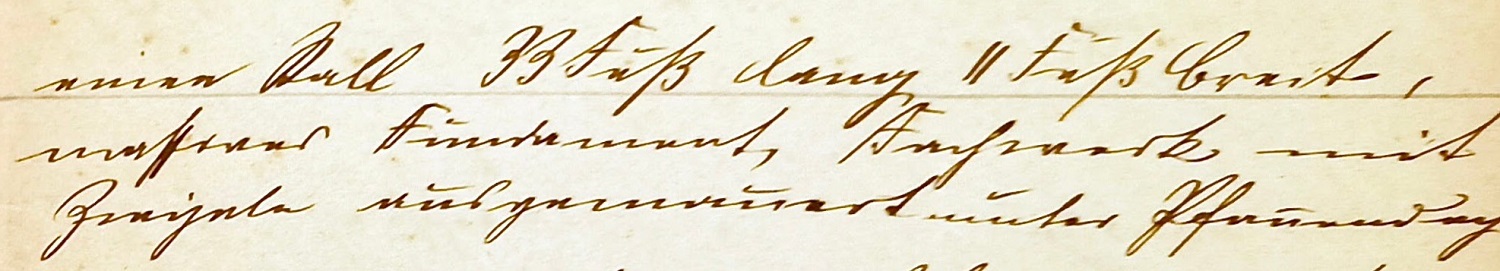 einen Stall 33 Fuß lang 11 Fuß breit,
massives Fundament, Fachwerk mit
Ziegeln ausgemauert unter Pfannendach